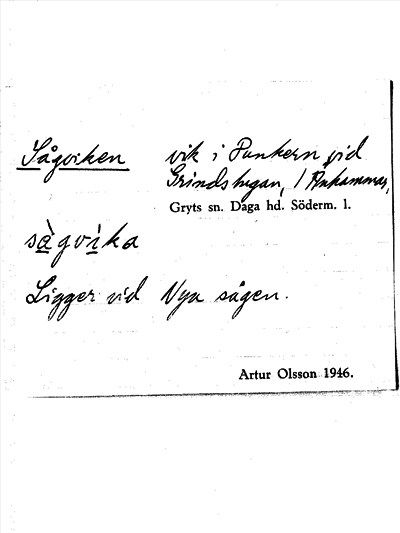 Sågviken
vik i Punkern vid
Grindstugan, 1 Ånhammar,
Gryts sn. Daga hd. Söderm. l.
sàgvìka
Ligger vid Nya sågen.
Artur Olsson 1946.